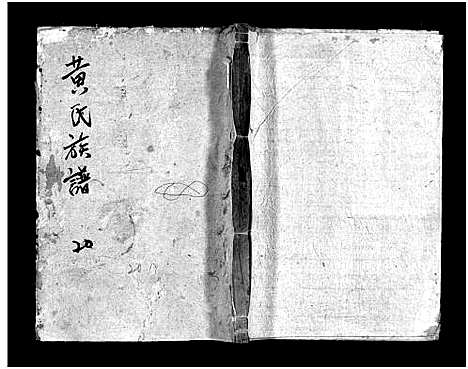 黄氏族譜
20
20